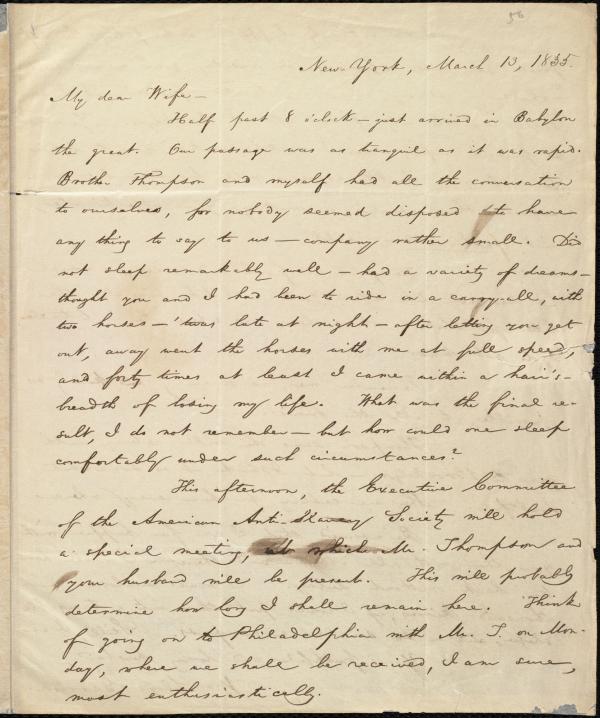 56
New-York, March 13, 1835.
My dear Wife—
Half past 8 o'clock—just arrived in Babylon
the great. Our passage was as tranquil as it was rapid.
Brother Thompson and myself had all the conversation
to ourselves, for nobody seemed disposed to have
any thing to say to us—company rather small. Did
not sleep remarkably well—had a variety of dreams—
thought you and I had been to ride in a carry-all, with
two horses—'twas late at night—after letting you get
out, away went the horses with me at full speed,
and forty times at least I came within a hair's-
breadth of losing my life. What was the final re-
sult, I do not remember—but how could one sleep
comfortably under such circumstances?
This afternoon, the Executive Committee
of the American Anti-Slavery Society will hold
a special meeting, at which Mr. Thompson and
your husband will be present. This will probably
determine how long I shall remain here. Think
of going on to Philadelphia with Mr. T. on Mon-
day, where we shall be received, I am sure,
most enthusiastically.